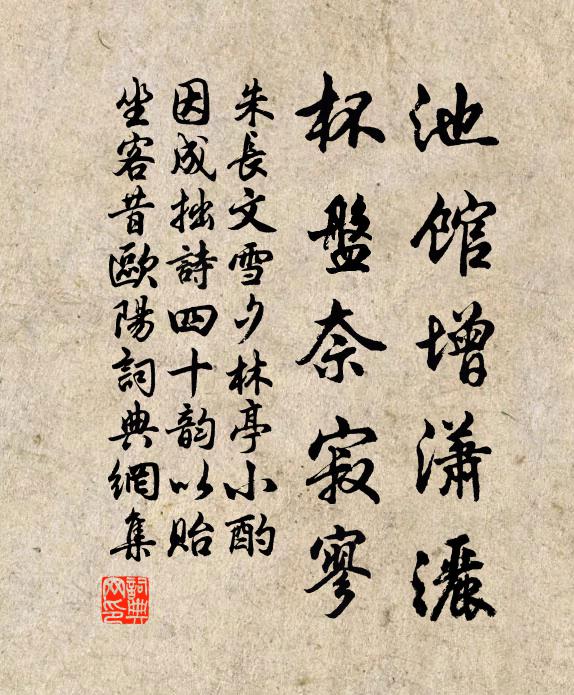 池館增瀟灑
杯盤奈寂寥
朱長文雪夕林亭小酌
因成拙詩四十韵以貽
坐客昔歐陽詞典網集
詞典网印